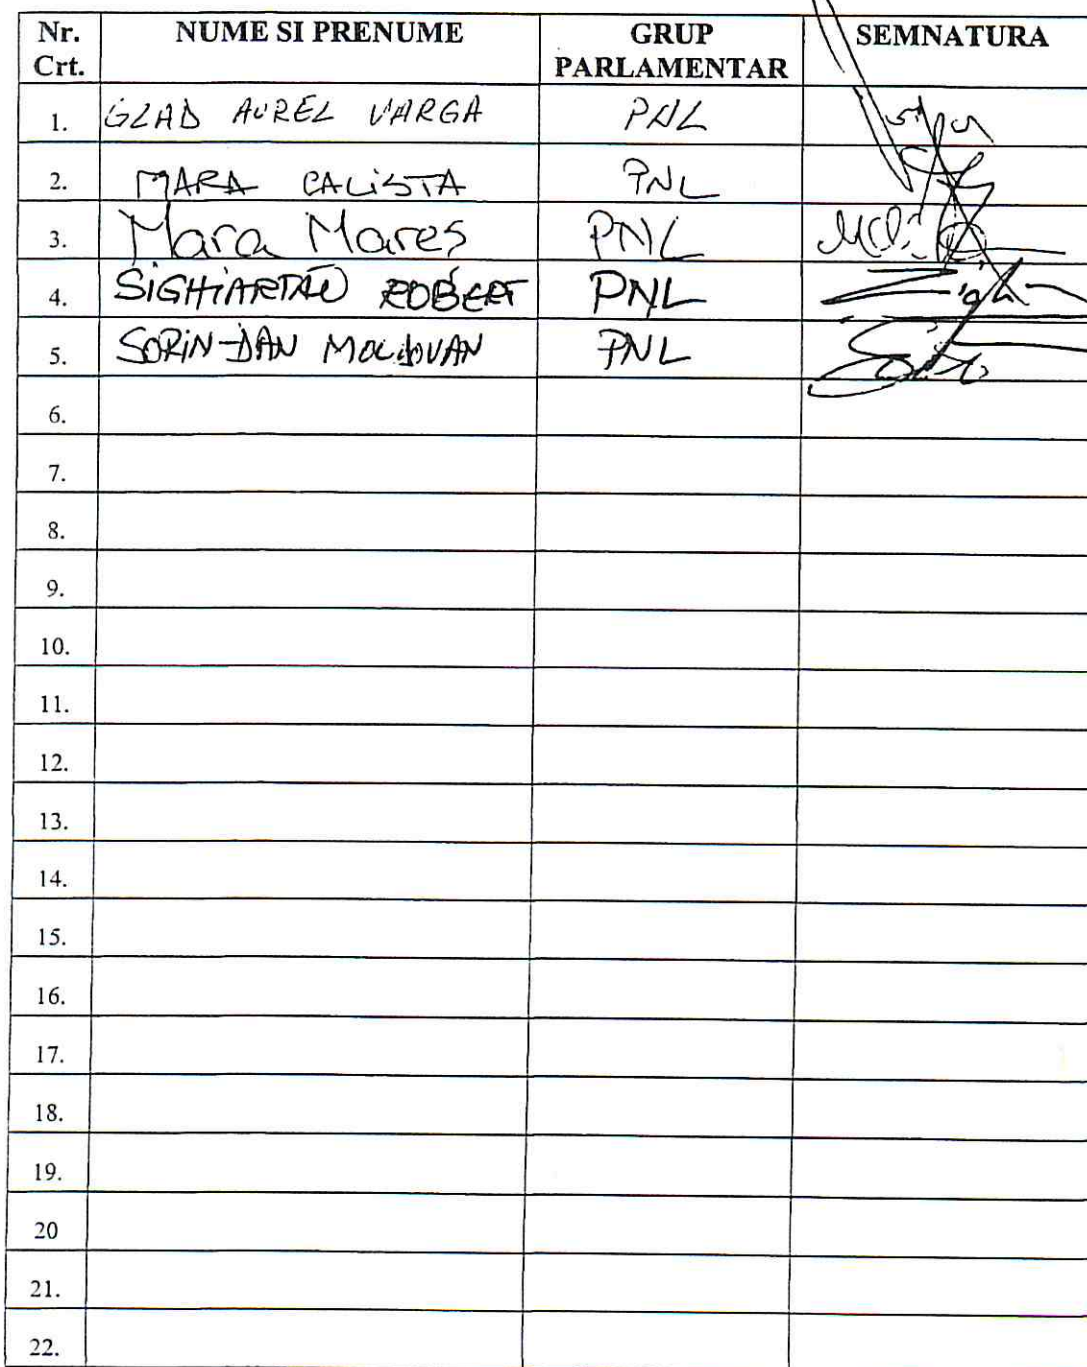 Nr. Crt. NUME SI PRENUME GRUP PARLAMENTAR SEMNATURA
1. GLAD AUREL VARGA PNL
2. MARA CALiSTA PNL
3. Mara Mareș PNL
4. SIGHIARTĂU ROBERT PNL
5. SORIN-DAN MOLDOVAN PNL
6.
7.
8.
9.
10.
11.
12.
13.
14.
15.
16.
17.
18.
19.
20
21.
22.